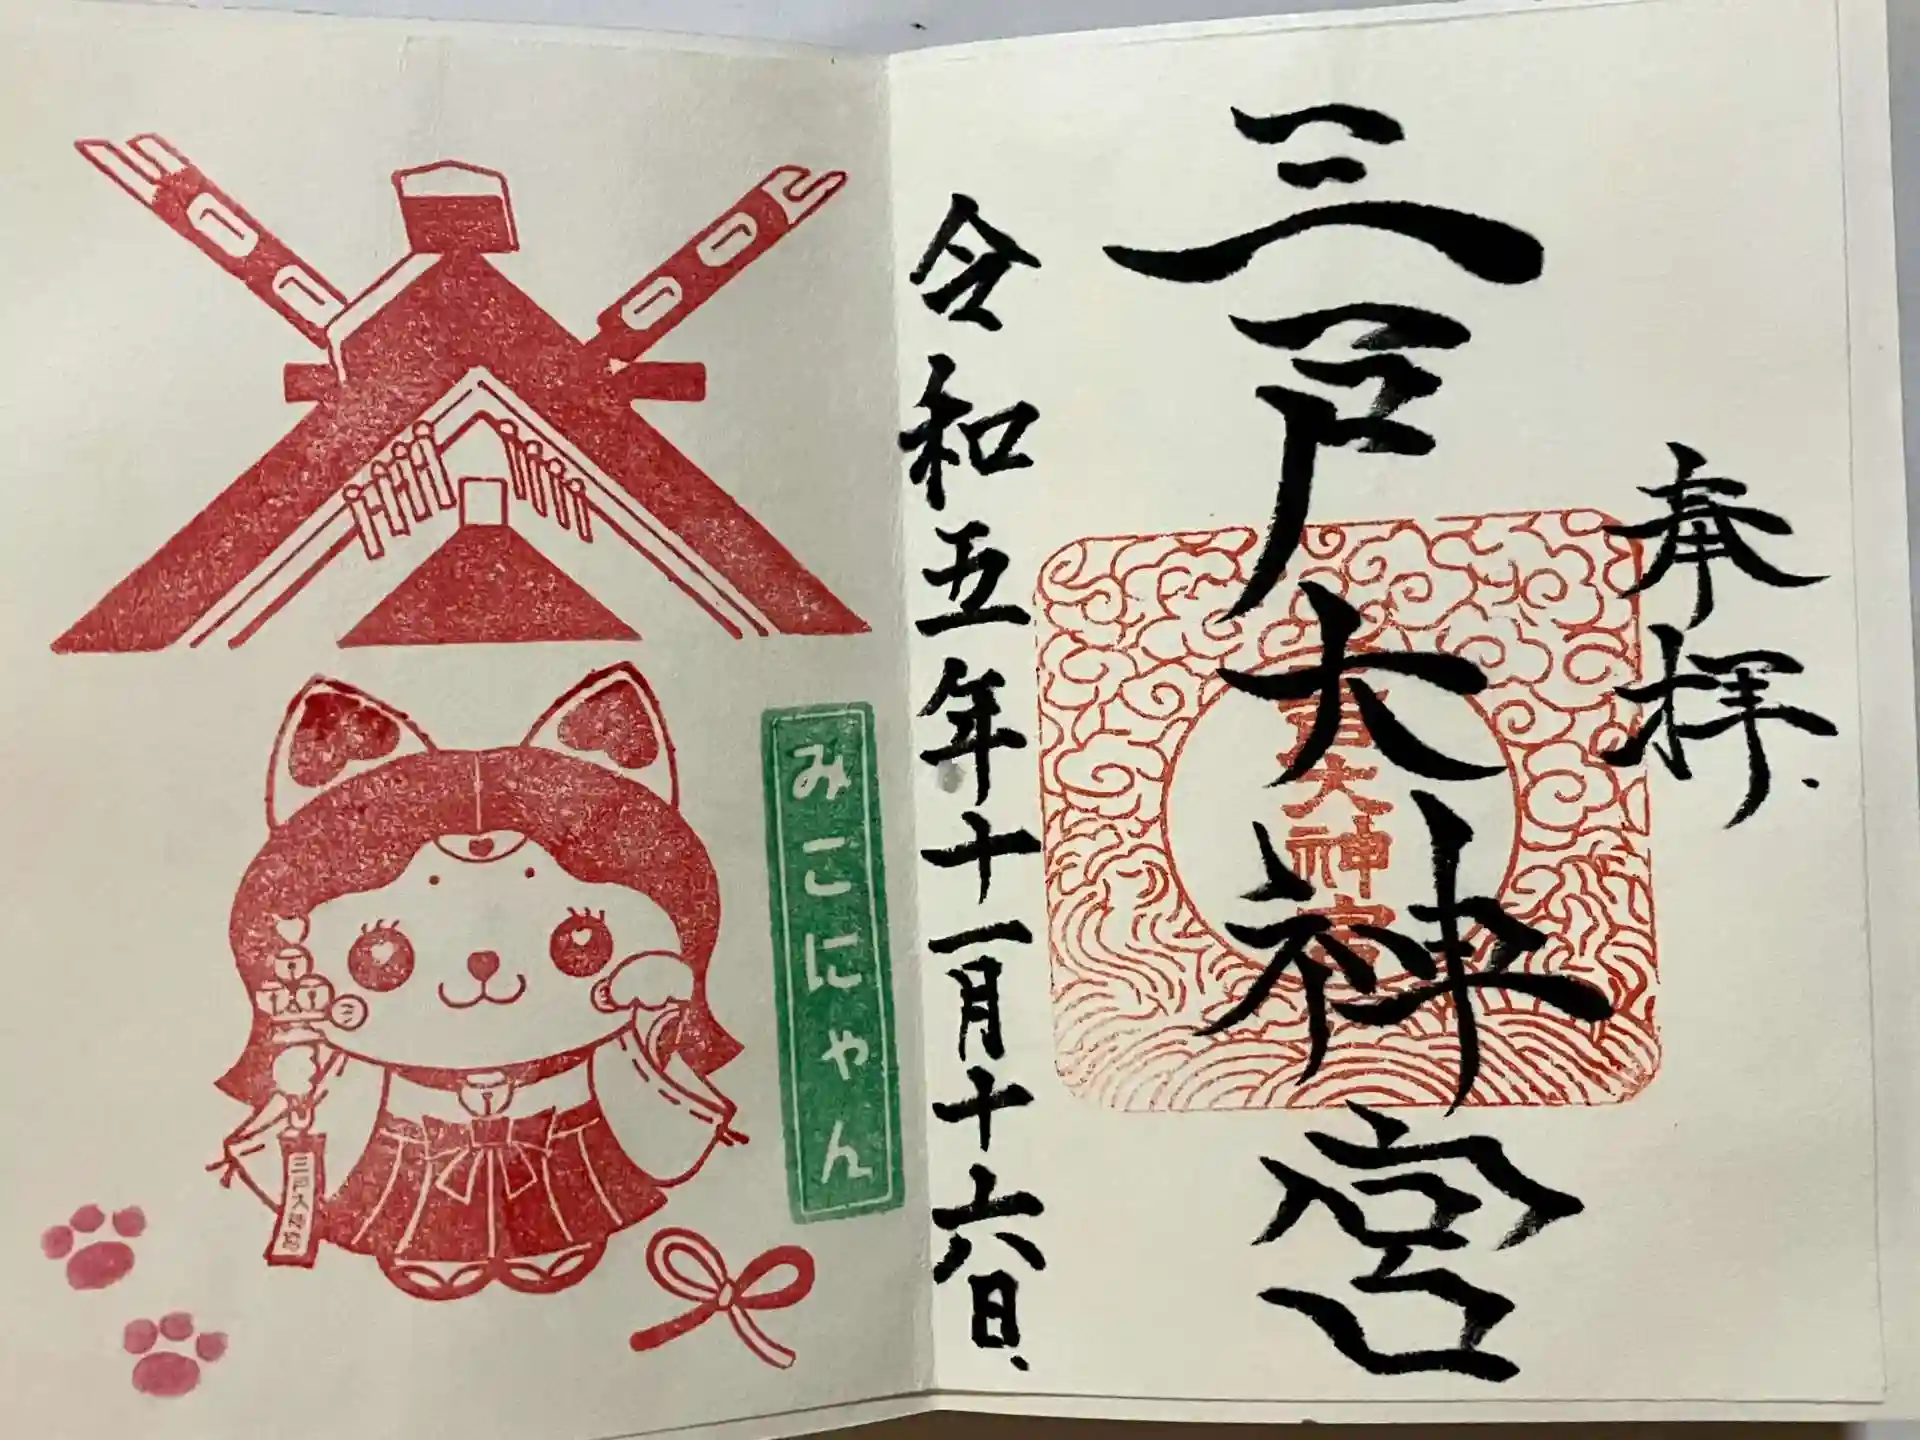 奉拝
三戸大神宮
令和五年十一月十六日
みこにゃん
三戸大神宮